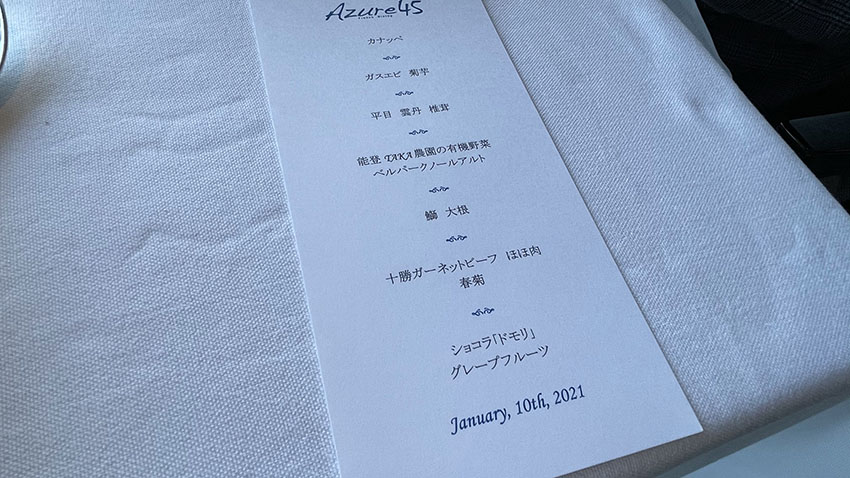 Azure45
カナッペ
ガスエビ 菊芋
平目 雲丹 椎茸
能登 TAKA 農園の有機野菜
ベルパークノールアルト
鰤 大根
十勝ガーネットビーフ ほほ肉
春菊
ショコラ「ドモリ」
グレープフルーツ
January, 10th, 2021